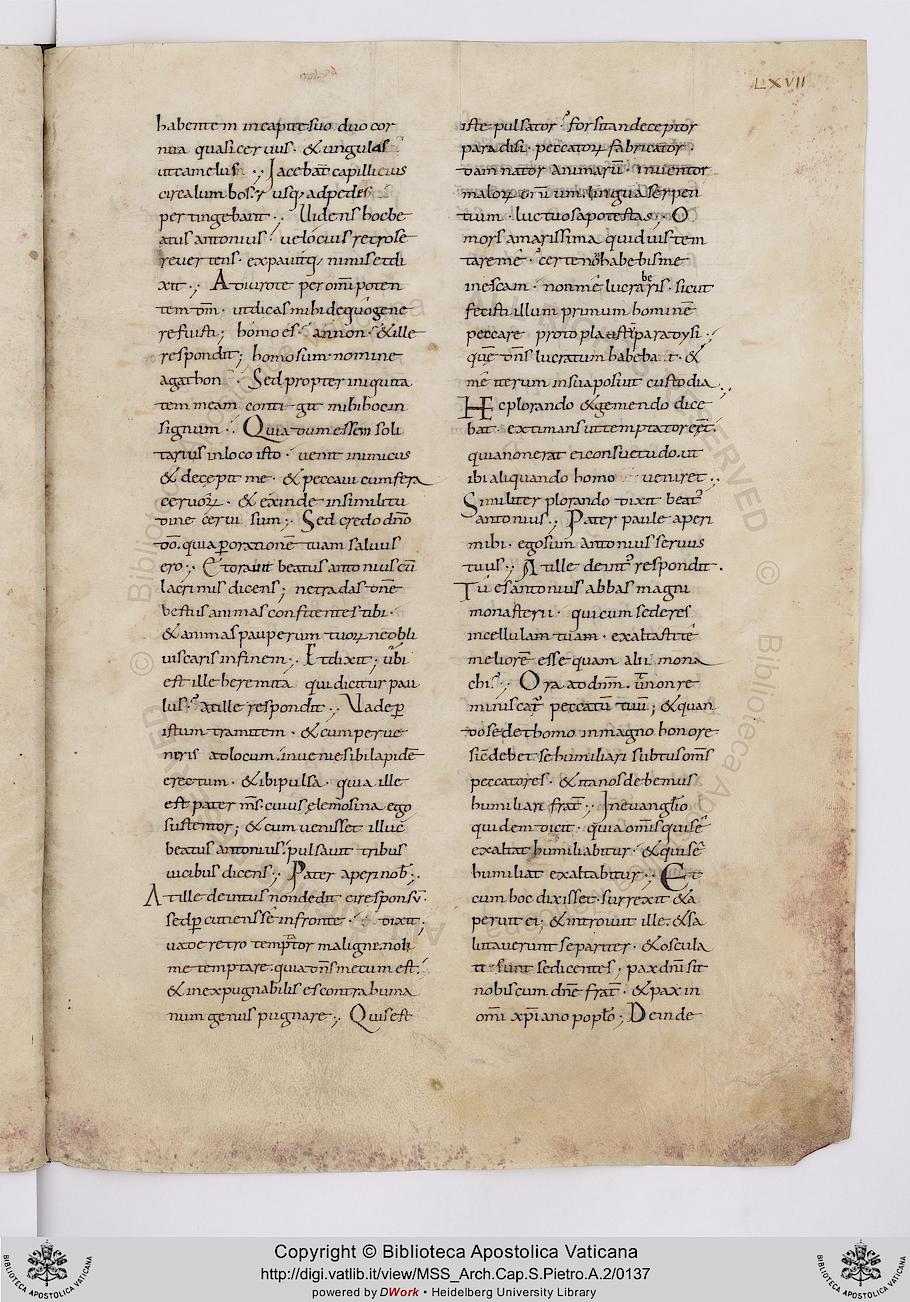 LXVII
habentem incapitesuo duo cor
nua quasi cervus · & ungulas
utcamelus ·,· Jacebat̄ capillicius
circalumbos · & usq; adpedes
pertingebant ·,· Uidens hocbe
atus antonius · uelocius retrose
revertens · expavitq; nimisetdi
xit ·,· Adiurote per om̄ipoten
tem dm̄ · utdicas mihi dequōgene
refuisti; homo es · annon · &ille
respondit; homosum · nomine
agathon · Sed propter iniquita
tem meam contigit mihi hocin
signum ·,· Quia dum essem soli
tarius inloco isto · uenit inimicus
& decepit me · & peccavi cumfera
cervorꝝ · & exinde insimilitu
dine cervi sum ·,· Sed credo dn̄o
dō · quia ꝑorationē tuam salvus
ero ·,· Etoravit beatus antonius cū
lacrimis dicens; netradas dn̄e
bestiis animas confitentes tibi ·
& animas pauperum tuorꝝ neobli
viscaris infinem ·,· Etdixit; ubi
est ille heremita quidicitur pau
lus · atille respondit ·,· Vadeꝑ
istum tramitem · & cumperve
neris adlocum · inveniesibilapidē
erectum · & ibipulsa · quia ille
est pater ms̄ · cuius elemosina ego
sustentor; & cum venisset illuc
beatus antonius · pulsavit tribus
vicibus dicens ·,· Pater aperi nob̄ ·,·
Atille deintus nondedit eiresponsū ·
sedꝑcutienssē infronte · dixit;
uade retro temptator maligne · noli
metemptare · quia dn̄smecum est ·
& inexpugnabilis escontrahuma
num genus pugnare ·,· Quisest
iste pulsator · forsitandeceptor
paradisi · peccatorꝝ fabricator ·
damnator animarū · inventor
malorꝝ omnium · linguaserpen
tium · luctuosapotestas ·,· O
mors amarissima quiduistem
taremē · certenōhabebisme
inescam · nonmē lucrabēris · sicut
fecisti illum primum hominē
peccare protoplaustūparadysi ·
quē dn̄s lucratum habebat · &
mē iterum insuaposuit custodia ·,·
Hec plorando & gemendo dice
bat · extimansuttemptatoreēt ·
quianonerat eiconsuetudo · ut
ibi aliquando homo veniret ·,·
Similiter plorando dixit beat᷒
antonius ·,· Pater paule aperi
mihi · egosum antonius servus
tuus ·,· Atille deint᷒ respondit ·
Tu es antonius abbas magni
monasterii · quicum sederes
incellulam tuam · exaltastitē
meliorē esse quam alii mona
chi ·,· Ora addnm̄ · ūt nonre
miniscat᷒ peccatū tuū; & quan
dosedethomo inmagno honore
sic̄debet sehumiliari subtusom̄s
peccatores · & itanosdebemus
humiliari frat̄ ·,· Inevanglio
quidem dicit · quia om̄squisē
exaltat humiliabitur · & quisē
humiliat exaltabitur ·,· Et
cum hoc dixisset · surrexit & a
peruit ei; & introivit ille · & sa
lutaverunt separiter · & oscula
ti sunt sedicentes; paxdn̄i sit
nobiscum dn̄e frat̄ · & pax in
om̄i xp̄iano poplo; Deinde
Copyright © Biblioteca Apostolica Vaticana
http://digi.vatlib.it/view/MSS_Arch.Cap.S.Pietro.A.2/0137
powered by DWork • Heidelberg University Library